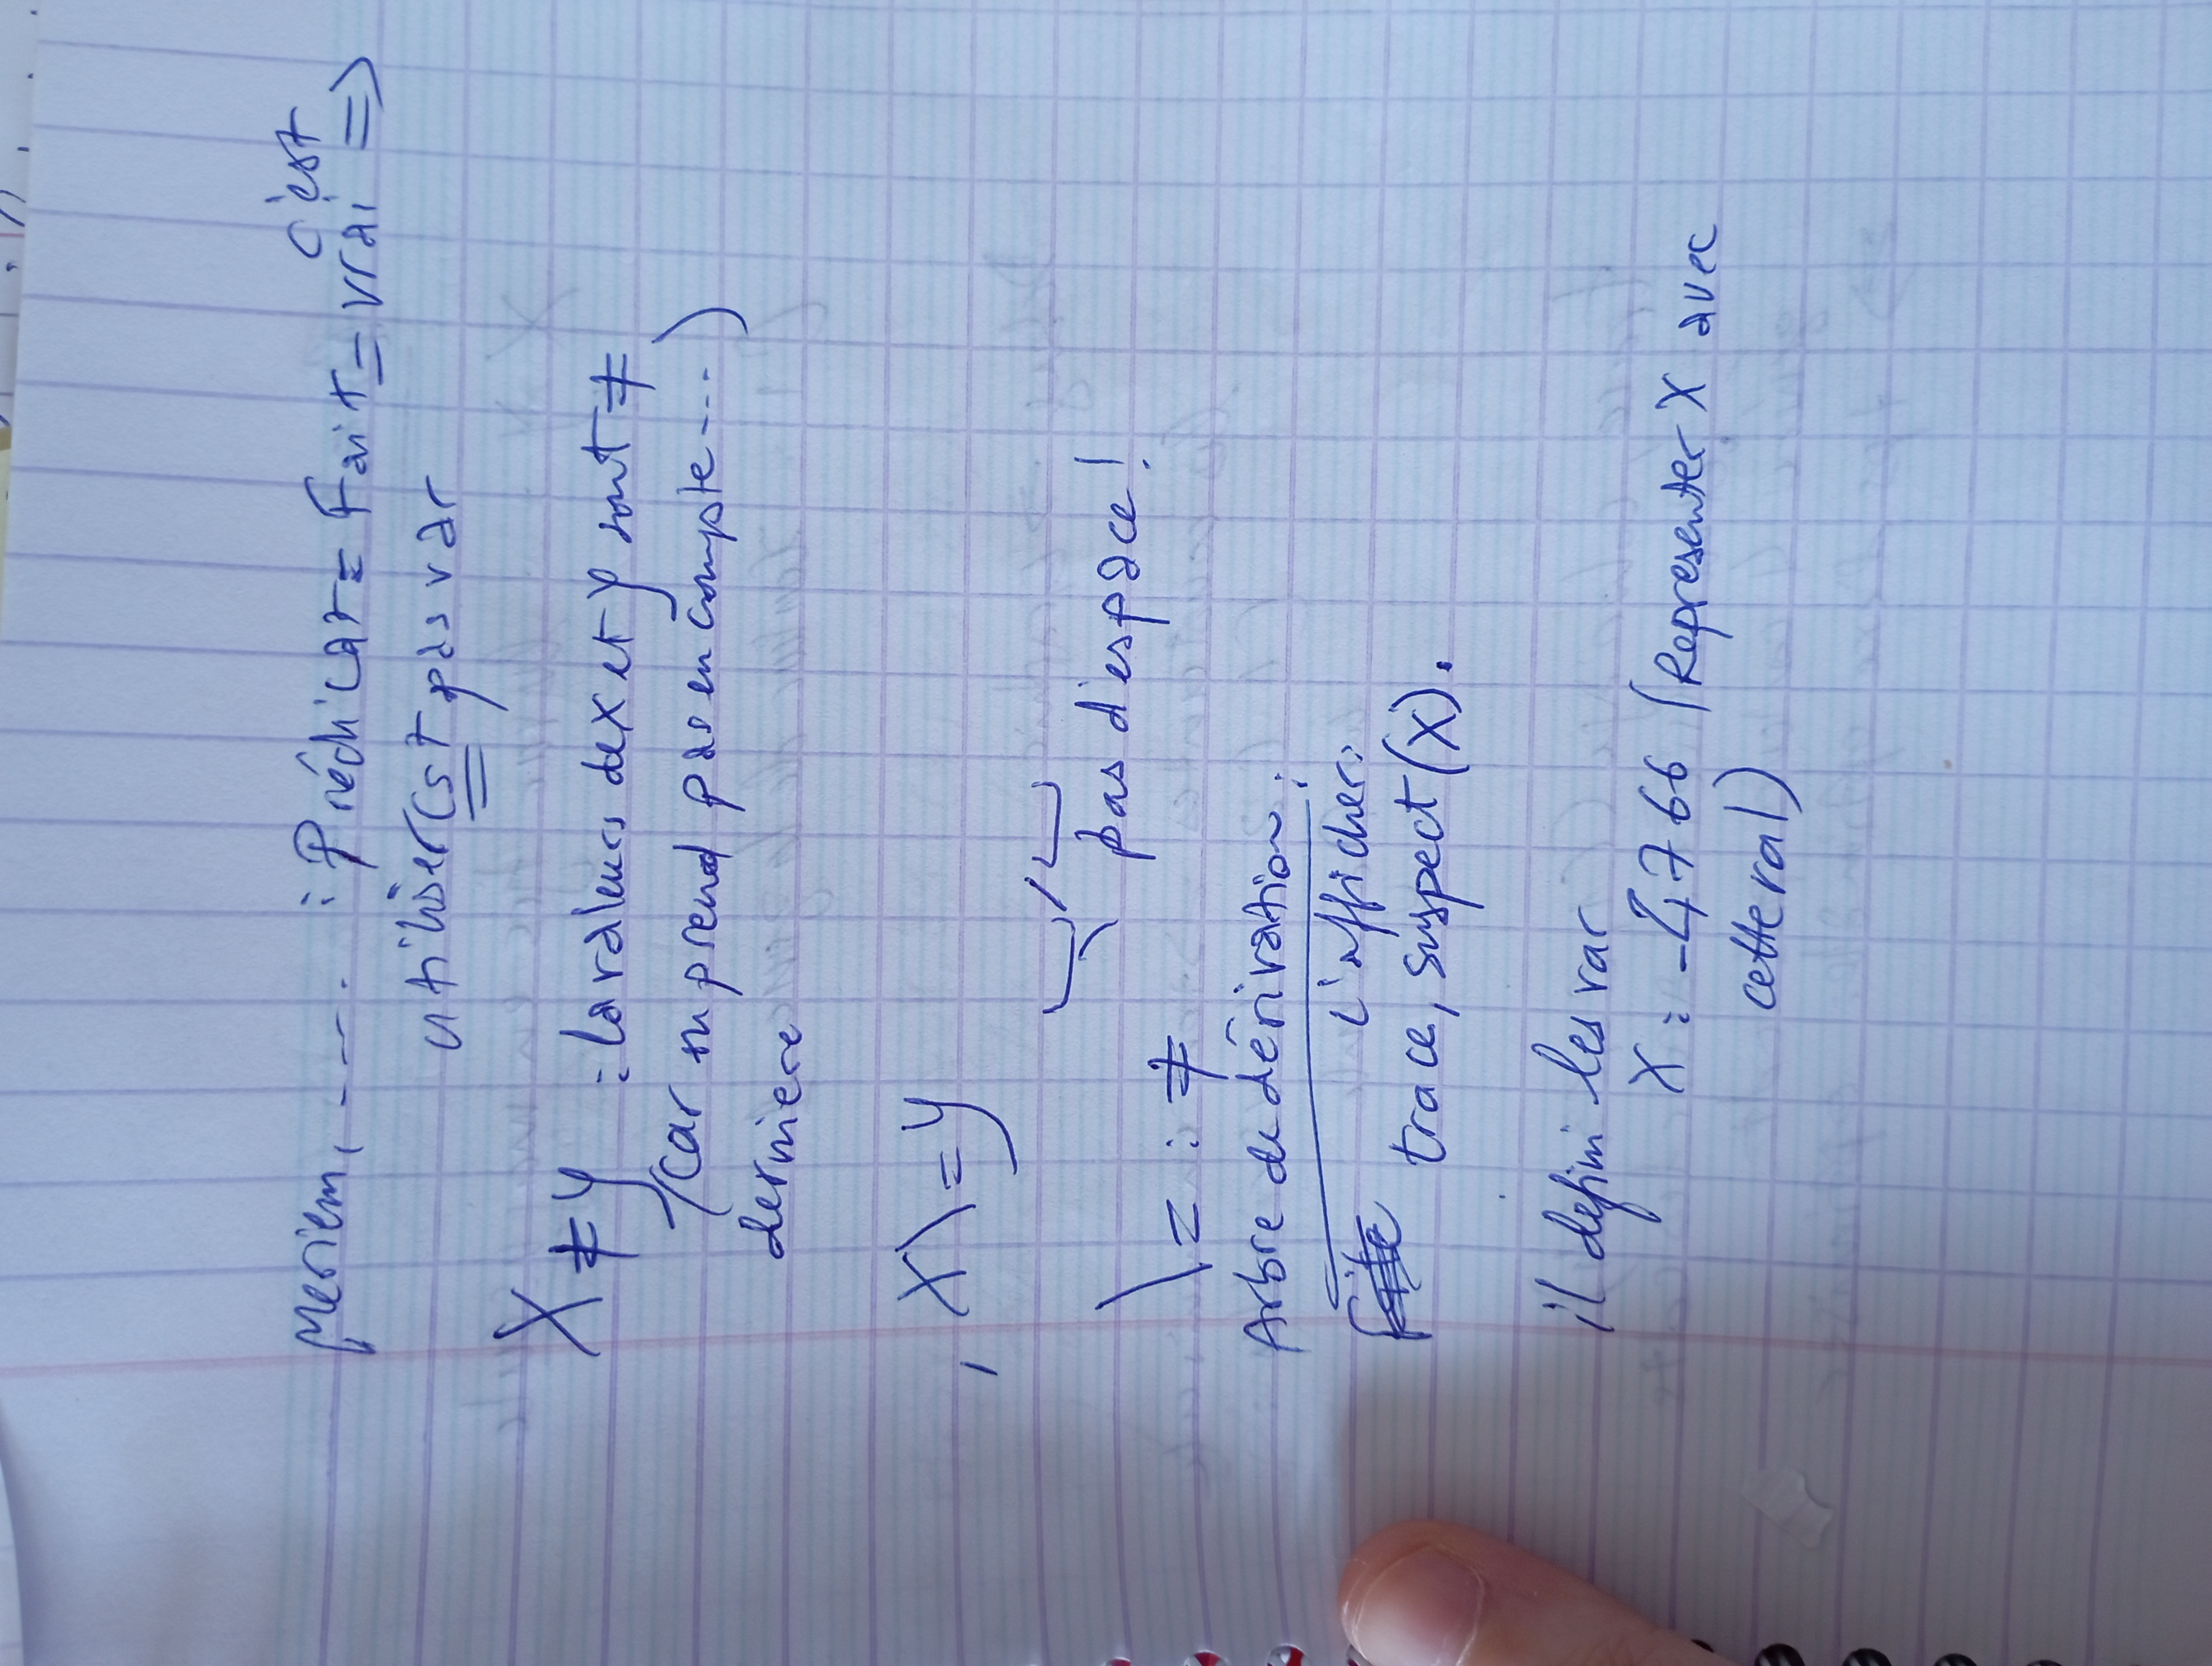 meriem, ---- : Prédicat = Fait = c'est vrai =>
utiliser cst pas var
X ≠ y : la valeurs de x et y sont ≠
(car on prend pas en compte ---)
derniere
, X\=y
pas d'espace!
\= : ≠
Arbre de dérivation :
L'afficher :
trace, suspect(X).
il defini les var
X : _4766 (Representer X avec
cette val)